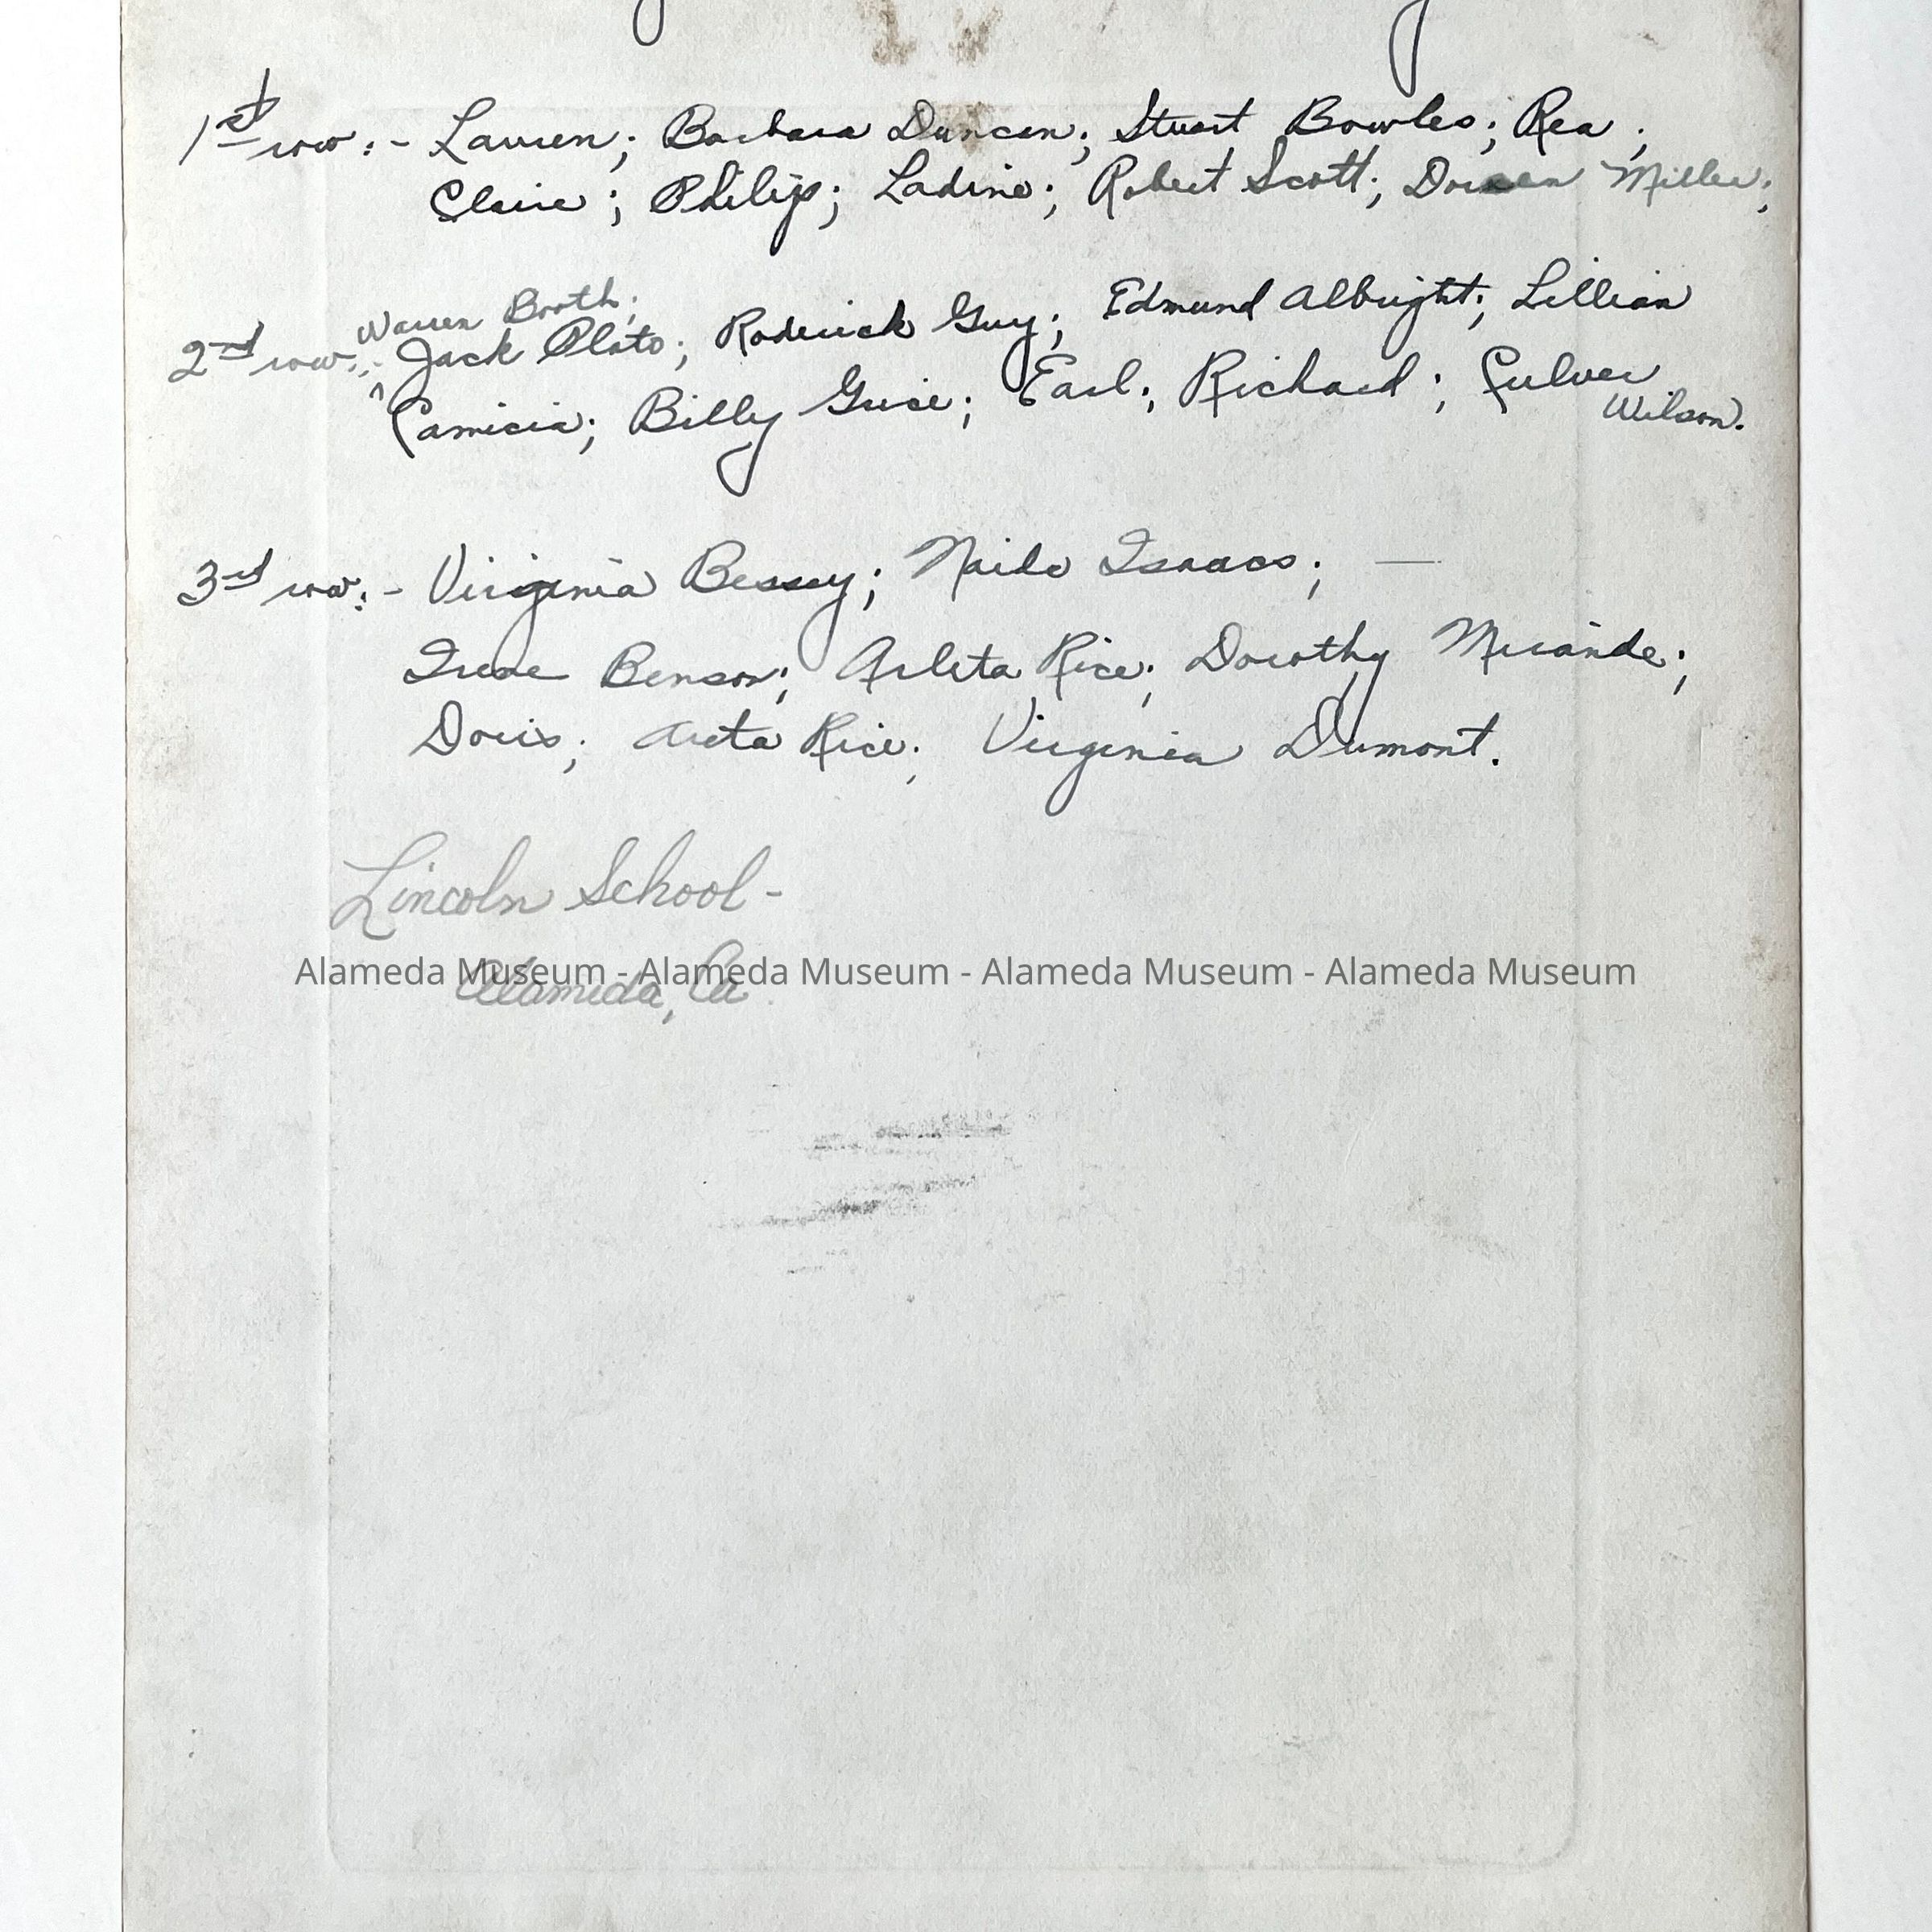 1st row:- Lauren; Barbara Duncan; Stuart Bowles; Rea;
Claire; Philip; Ladine; Robert Scott; Doreen Miller;
Warren Booth;
2nd row:- Jack Plato; Roderick Guy; Edmund Albright; Lillian
Camicia; Billy Grice; Earl; Richard; Culver
Wilson.
3rd row:- Virginia Bessey; Naido Isaacs; —
Irene Benson; Arleta Rice; Dorothy Mirande;
Doris; Areta Rice; Virginia Dumont.
Lincoln School-
Alameda Museum - Alameda Museum - Alameda Museum - Alameda Museum
Alameda, Ca.